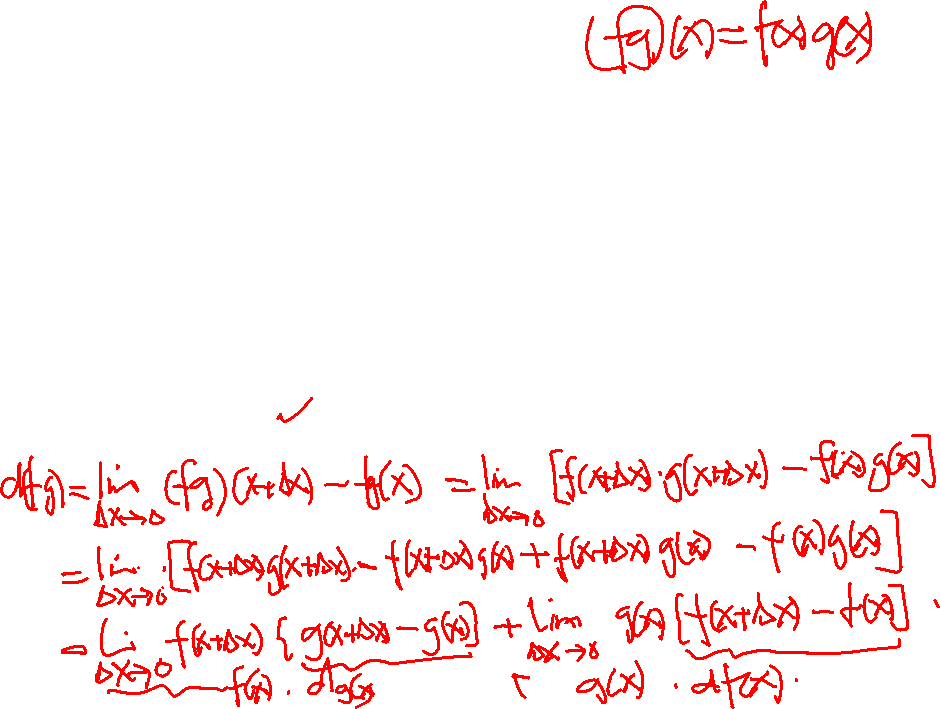 (fg)(x)=f(x)g(x)
d(fg)=lim Δx→0 (fg)(x+Δx)-fg(x) = lim Δx→0 [f(x+Δx)·g(x+Δx)-f(x)g(x)]
=lim Δx→0 [f(x+Δx)g(x+Δx)-f(x+Δx)g(x)+f(x+Δx)g(x)-f(x)g(x)]
=lim Δx→0 f(x+Δx){g(x+Δx)-g(x)]+lim Δx→0 g(x)[f(x+Δx)-f(x)]
f(x)·dg(x) g(x)·df(x).